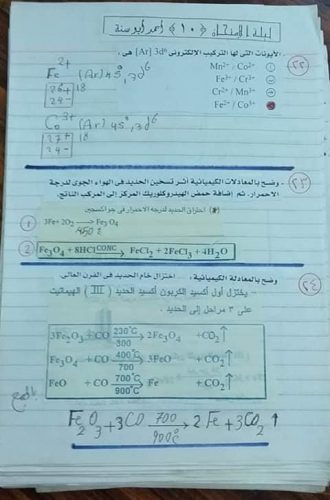 ليلة الامتحان (١٠) أحمد أبو سنة
٢٢
الأيونات التى لها التركيب الالكترونى [Ar] 3d⁶ هى :
Mn²⁺ / Co²⁺
Fe³⁺ / Cr³⁺
Cr²⁺ / Mn³⁺
Fe²⁺ / Co³⁺
2+
Fe (Ar) 4s⁰, 3d⁶
26+ 18
24-
3+
Co (Ar) 4s⁰, 3d⁶
27+ 18
24-
٢٣
- وضح بالمعادلات الكيميائية أثر تسخين الحديد فى الهواء الجوى لدرجة
الاحمرار، ثم إضافة حمض الهيدروكلوريك المركز إلى المركب الناتج.
احتراق الحديد لدرجة الاحمرار فى جو اكسجين
1 3Fe + 2O₂ → Fe₃O₄
2 Fe₃O₄ + 8HCl CONC → FeCl₂ + 2FeCl₃ + 4H₂O
٢٤
وضح بالمعادلة الكيميائية : اختزال خام الحديد فى الفرن العالى.
- يختزل أول أكسيد الكربون أكسيد الحديد (III) الهيماتيت
على ٣ مراحل إلى الحديد .
3Fe₂O₃ + CO 230°C 300 → 2Fe₃O₄ + CO₂↑
Fe₃O₄ + CO 400°C 700 → 3FeO + CO₂↑
FeO + CO 700°C 900°C → Fe + CO₂↑
بالجمع
Fe₂O₃ + 3CO 700 900°C → 2Fe + 3CO₂↑